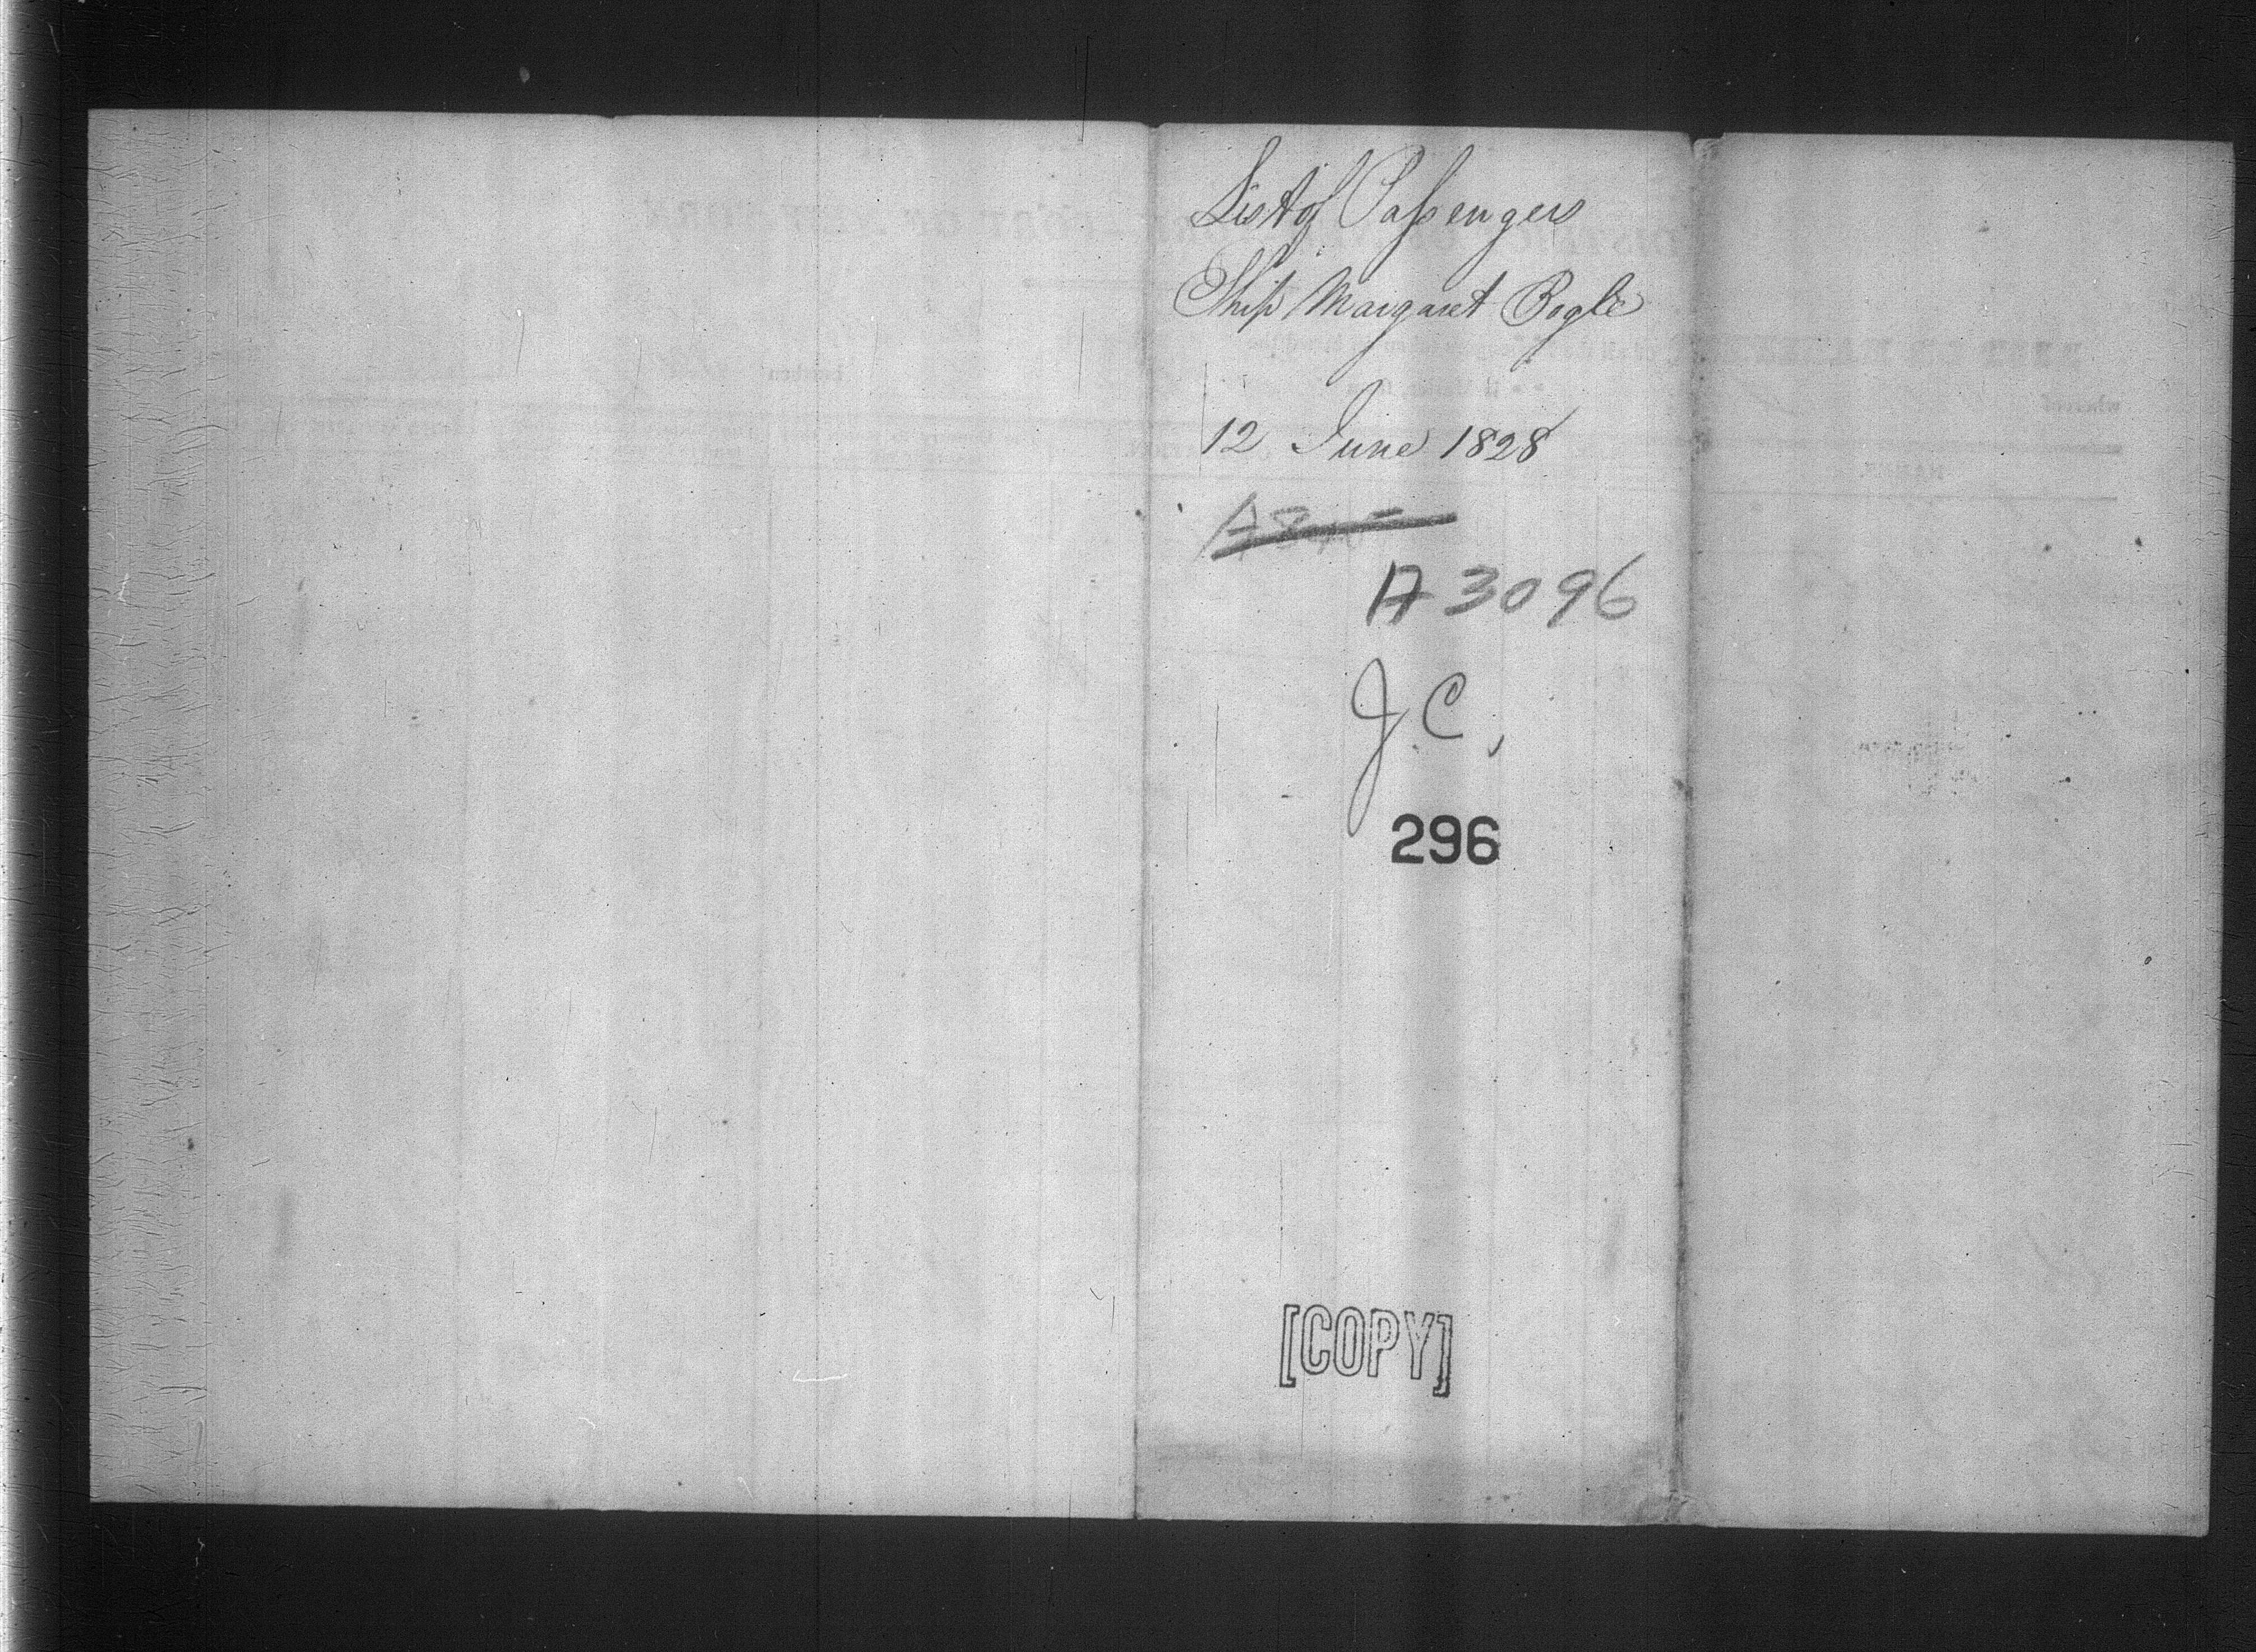 List of Passengers
Ship Margaret Bogle
12 June 1828
A 3096
J. C.,
296
[COPY]